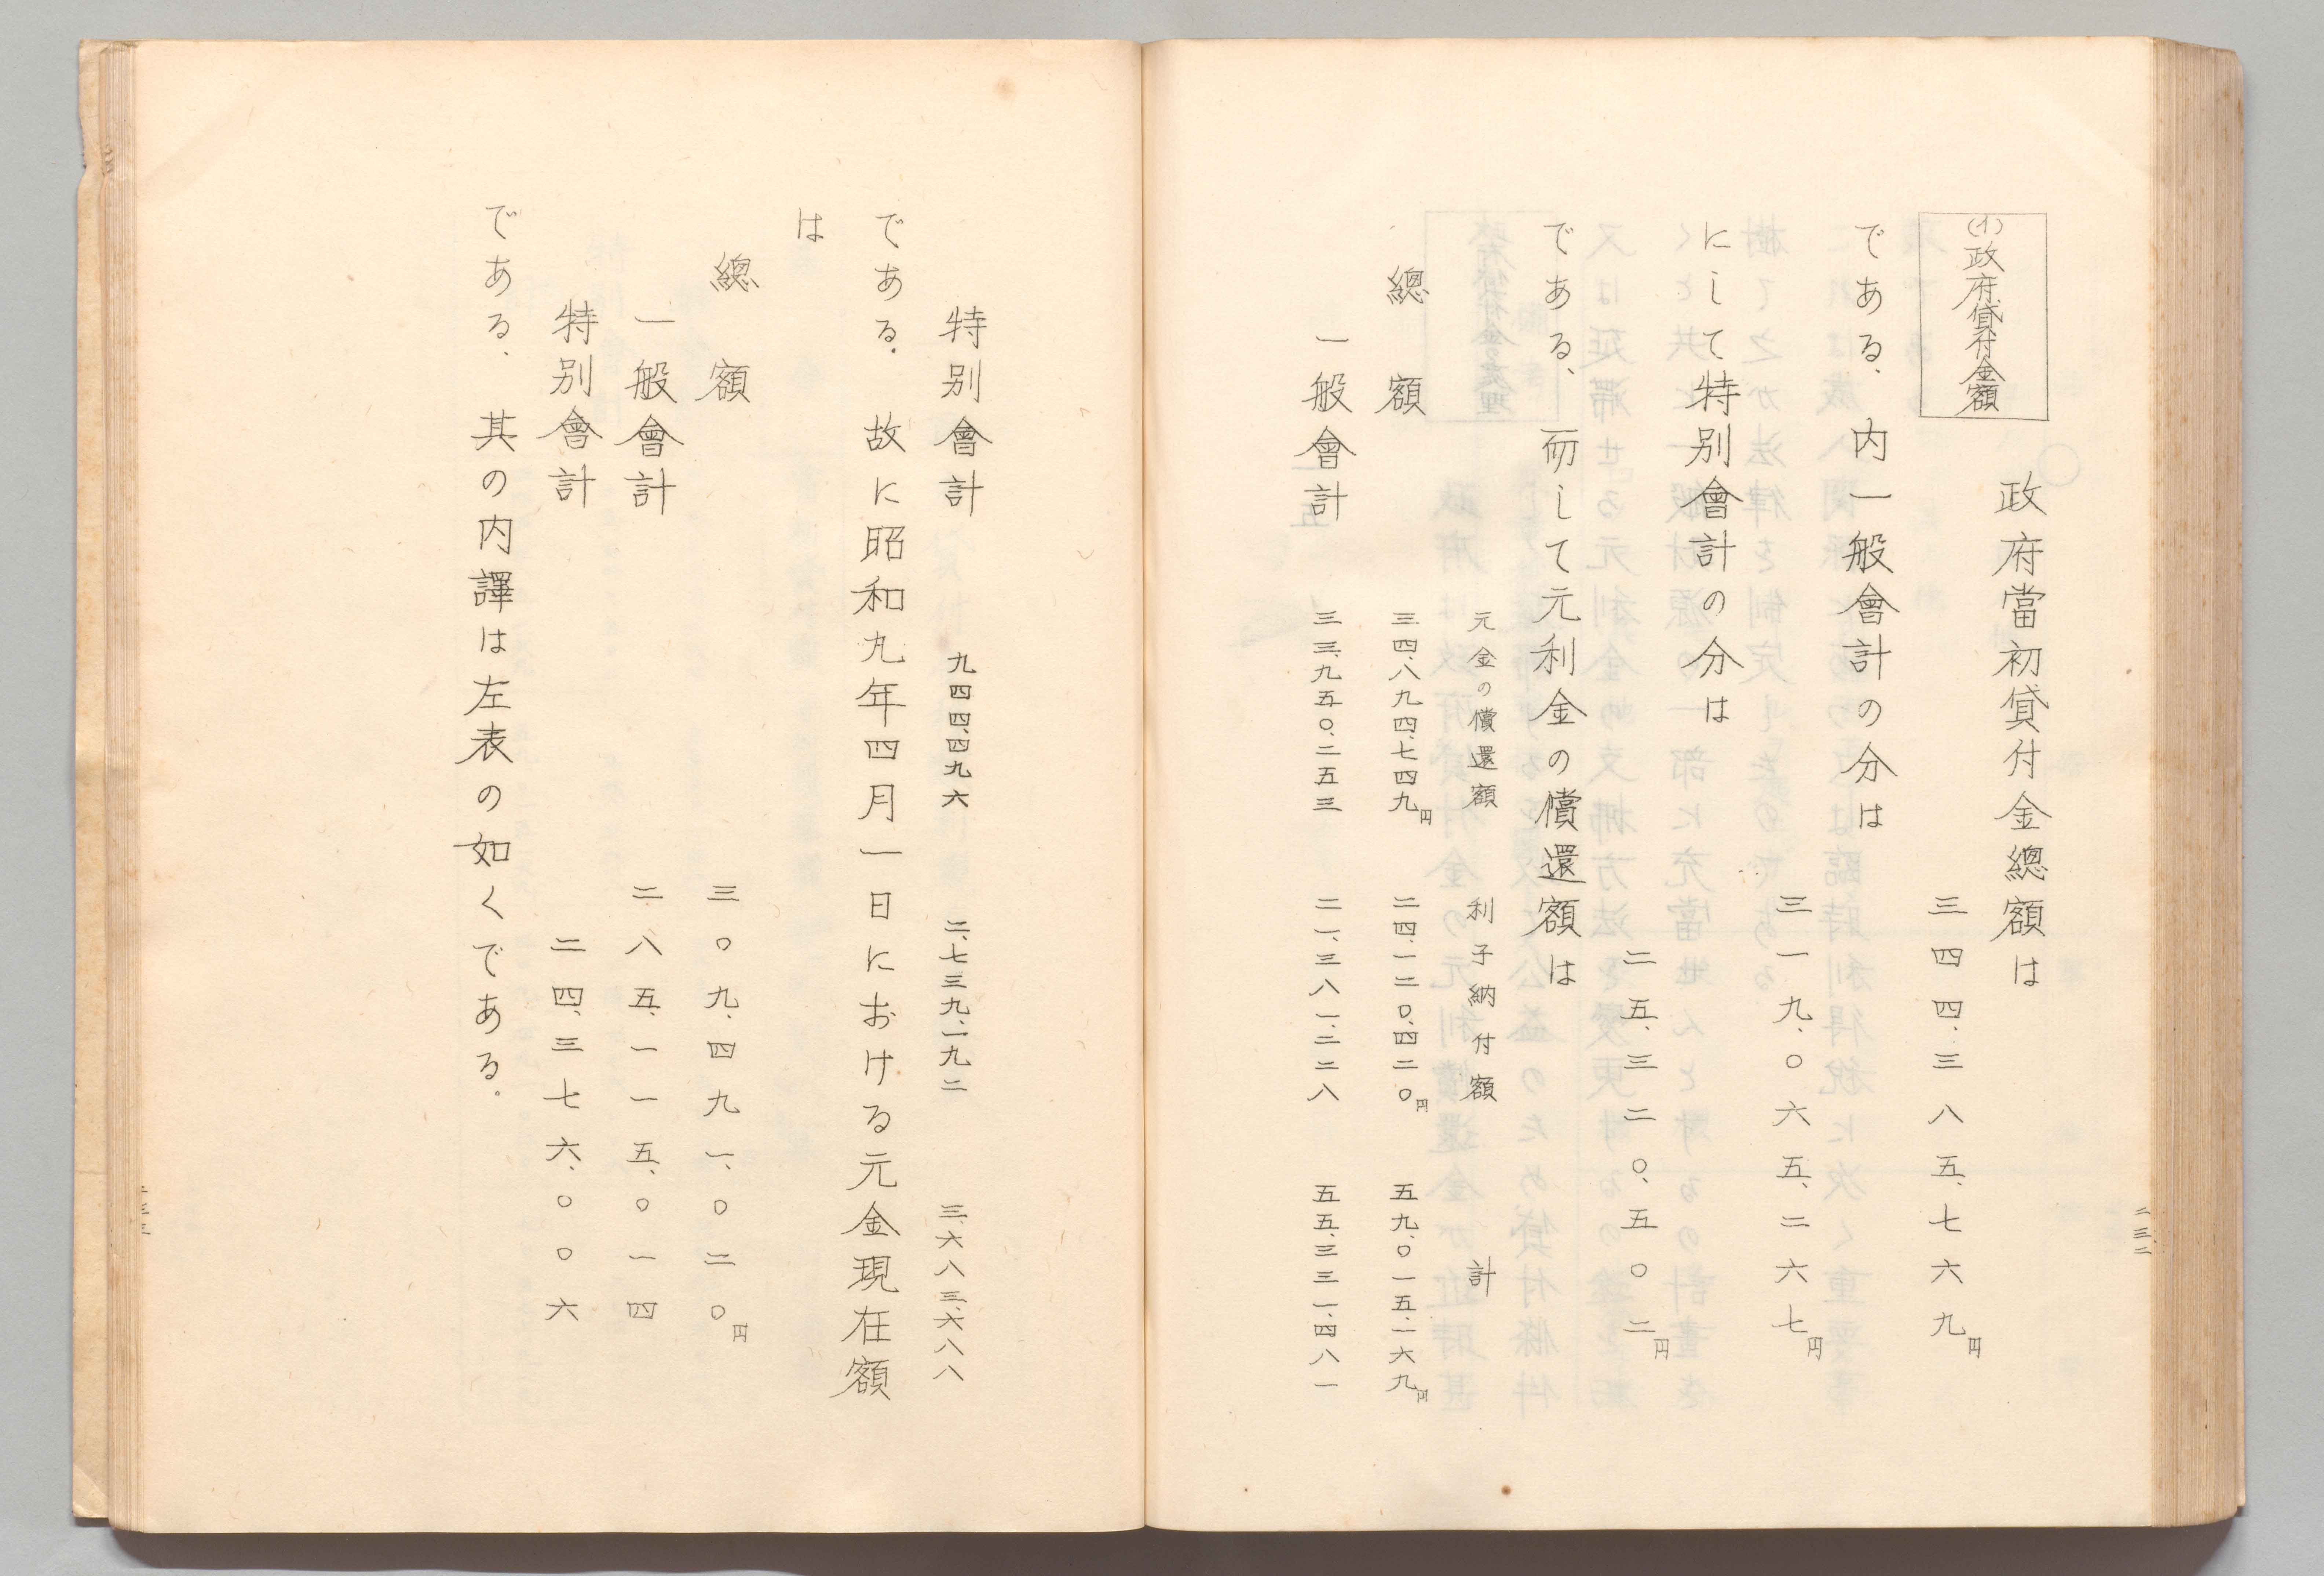 二三二
(イ)政府貸付金額
政府當初貸付金總額は
三四四、三八五、七六九円
である、内一般會計の分は
三一九、〇六五、二六七円
にして特別會計の分は
二五、三二〇、五〇二円
である、而して元利金の償還額は
元金の償還額　利子納付額　計
總額　三四、八九四、七四九円　二四、一二〇、四二〇円　五九、〇一五、一六九円
一般會計　三三、九五〇、二五三　二一、三八一、二二八　五五、三三一、四八一
特別會計　九四四、四九六　二、七三九、一九二　三、六八三、六八八
である。故に昭和九年四月一日における元金現在額
は
總額　三〇九、四九一、〇二〇円
一般會計　二八五、一一五、〇一四
特別會計　二四、三七六、〇〇六
である、其の内譯は左表の如くである。
二三三